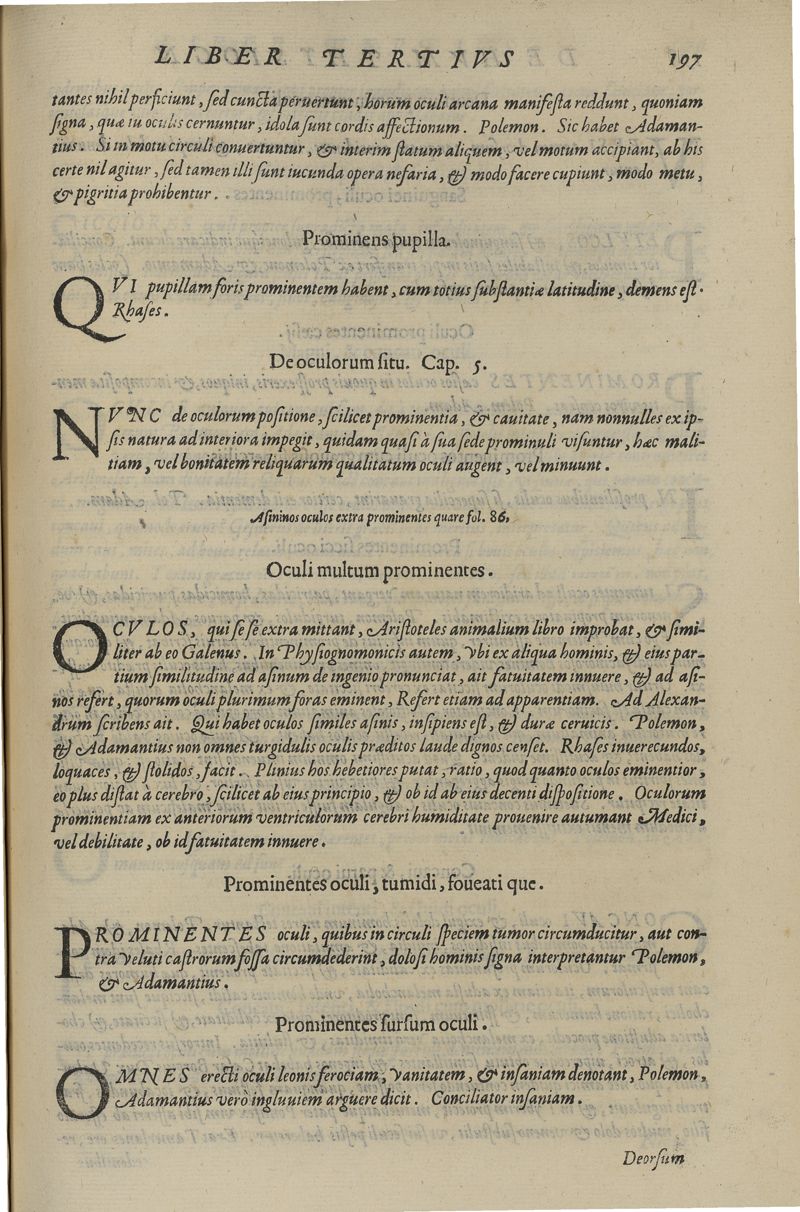 LIBER TERTIVS 197
tantes nihil perficiunt, ſed cuncta peruertunt, horum oculi arcana manifeſta reddunt, quoniam
ſigna, quæ in oculis cernuntur, idola ſunt cordis affectionum. Polemon. Sic habet Adaman-
tius. Si in motu circuli conuertuntur, & interim ſtatum aliquem, vel motum accipiant, ab his
certe nil agitur, ſed tamen illi ſunt iucunda opera nefaria, & modo facere cupiunt, modo metu,
& pigritia prohibentur.
Prominens pupilla.
QVI pupillam foris prominentem habent, cum totius ſubſtantiæ latitudine, demens eſt.
Rhaſes.
De oculorum ſitu. Cap. 5.
NVNC de oculorum poſitione, ſcilicet prominentia, & cauitate, nam nonnulles ex ip-
ſis natura ad interiora impegit, quidam quaſi à ſua ſede prominuli viſuntur, hæc mali-
tiam, vel bonitatem reliquarum qualitatum oculi augent, vel minuunt.
Aſininos oculos extra prominentes quare fol. 86,
Oculi multum prominentes.
OCVLOS, qui ſe ſe extra mittant, Ariſtoteles animalium libro improbat, & ſimi-
liter ab eo Galenus. In Phyſiognomonicis autem, vbi ex aliqua hominis, & eius par-
tium ſimilitudine ad aſinum de ingenio pronunciat, ait fatuitatem innuere, & ad aſi-
nos refert, quorum oculi plurimum foras eminent, Refert etiam ad apparentiam. Ad Alexan-
drum ſcribens ait. Qui habet oculos ſimiles aſinis, inſipiens eſt, & duræ ceruicis. Polemon,
& Adamantius non omnes turgidulis oculis præditos laude dignos cenſet. Rhaſes inuerecundos,
loquaces, & ſtolidos, facit. Plinius hos hebetiores putat, ratio, quod quanto oculos eminentior,
eo plus diſtat à cerebro, ſcilicet ab eius principio, & ob id ab eius decenti diſpoſitione. Oculorum
prominentiam ex anteriorum ventriculorum cerebri humiditate prouenire autumant Medici,
vel debilitate, ob id fatuitatem innuere.
Prominentes oculi, tumidi, foueati que.
PROMINENTES oculi, quibus in circuli ſpeciem tumor circumducitur, aut con-
tra veluti caſtrorum foſſa circumdederint, doloſi hominis ſigna interpretantur Polemon,
& Adamantius.
Prominentes ſurſum oculi.
OMNES erecti oculi leonis ferociam, vanitatem, & inſaniam denotant, Polemon,
Adamantius verò ingluuiem arguere dicit. Conciliator inſaniam.
Deorſum